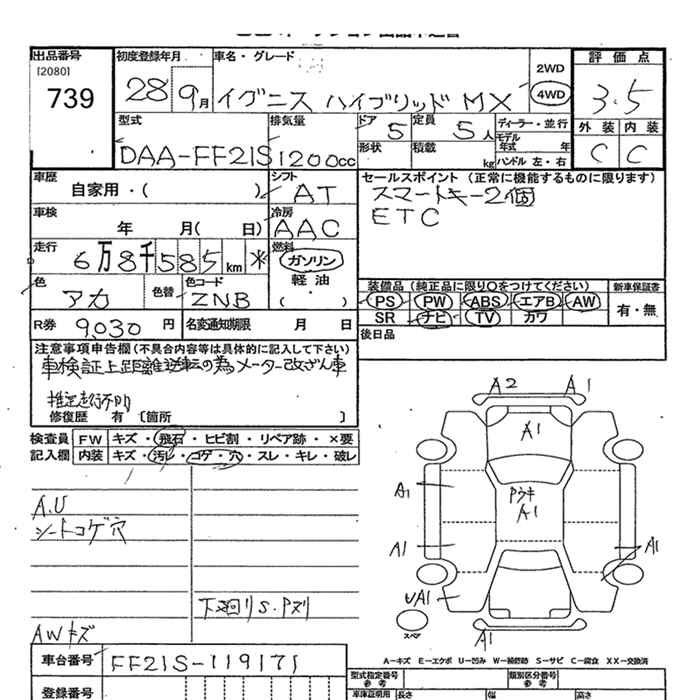 出品番号
[2080]
739
初度登録年月
28 9月
車名・グレード
イグニス ハイブリッド MX
2WD
4WD
評価点
3.5
外装 内装
C C
型式
DAA-FF21S
排気量
1200cc
ドア 5
定員 5人
形状
積載 kg
ディーラー・並行
モデル年式 年
ハンドル 左・右
車歴
自家用・( )
シフト
AT
車検
年 月( 日)
冷房
AAC
走行
6万8千585km *
燃料
ガソリン
軽油
・( )
色
アカ
色替
色コード
ZNB
R券 9,030円
名変通知期限 月 日
セールスポイント(正常に機能するものに限ります)
スマートキー2個
ETC
装備品(純正品に限り○をつけてください)
PS PW ABS エアB AW
SR ナビ TV カワ
新車保証書
有・無
後日品
注意事項申告欄(不具合内容等は具体的に記入して下さい)
車検証上距離逆転の為メーター改ざん車
推定走行不明
修復歴 有 [箇所 ]
検査員記入欄
FW キズ・飛石・ヒビ割・リペア跡・×要
内装 キズ・汚レ・コゲ・穴・スレ・キレ・破レ
A.U
シートコゲ穴
下廻りS.Pヌリ
AWキズ
A2 A1
A1
A1
Pウキ
A1
A1
A1
UA1
スペア
A1
A-キズ E-エクボ U-凹み W-補修跡 S-サビ C-腐食 XX-交換済
車台番号
FF21S-119171
登録番号
型式指定番号
参考
類別区分番号
参考
車庫証明用
長さ 幅 高さ